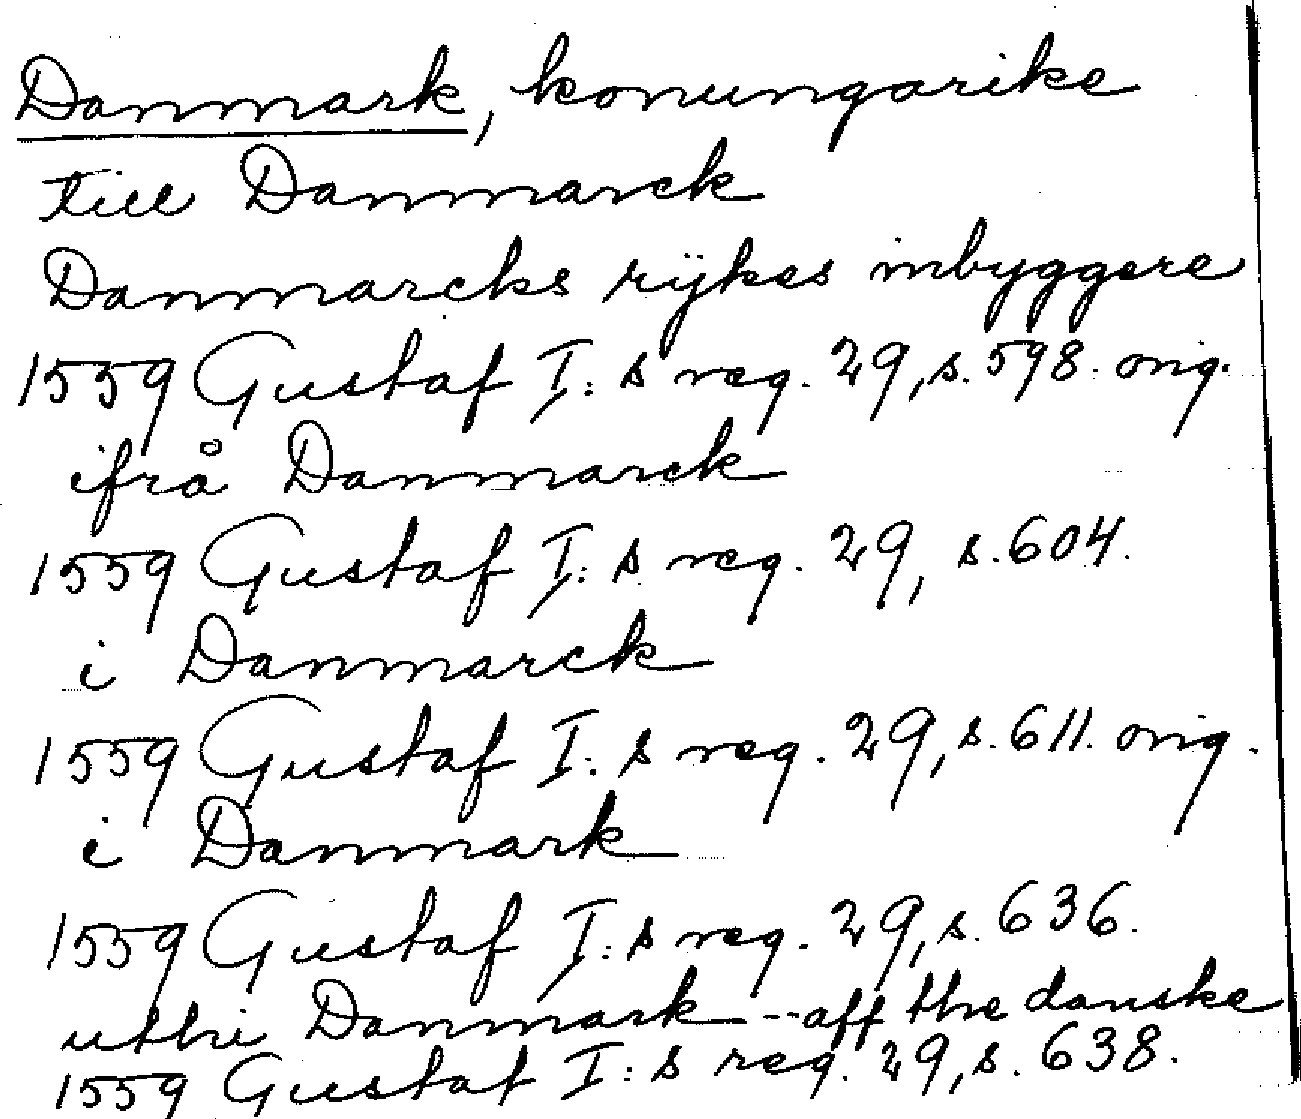 Danmark, konungarike
till Danmarck
Danmarcks rÿkes inbyggere
1559 Gustaf I:s reg. 29, s. 598. orig.
ifrå Danmarck
1559 Gustaf I:s reg. 29, s. 604.
i Danmarck
1559 Gustaf I:s reg. 29, s. 611. orig.
i Danmark
1559 Gustaf I:s reg. 29, s. 636.
uthi Danmark -- aff the danske
1559 Gustaf I:s reg. 29, s. 638.